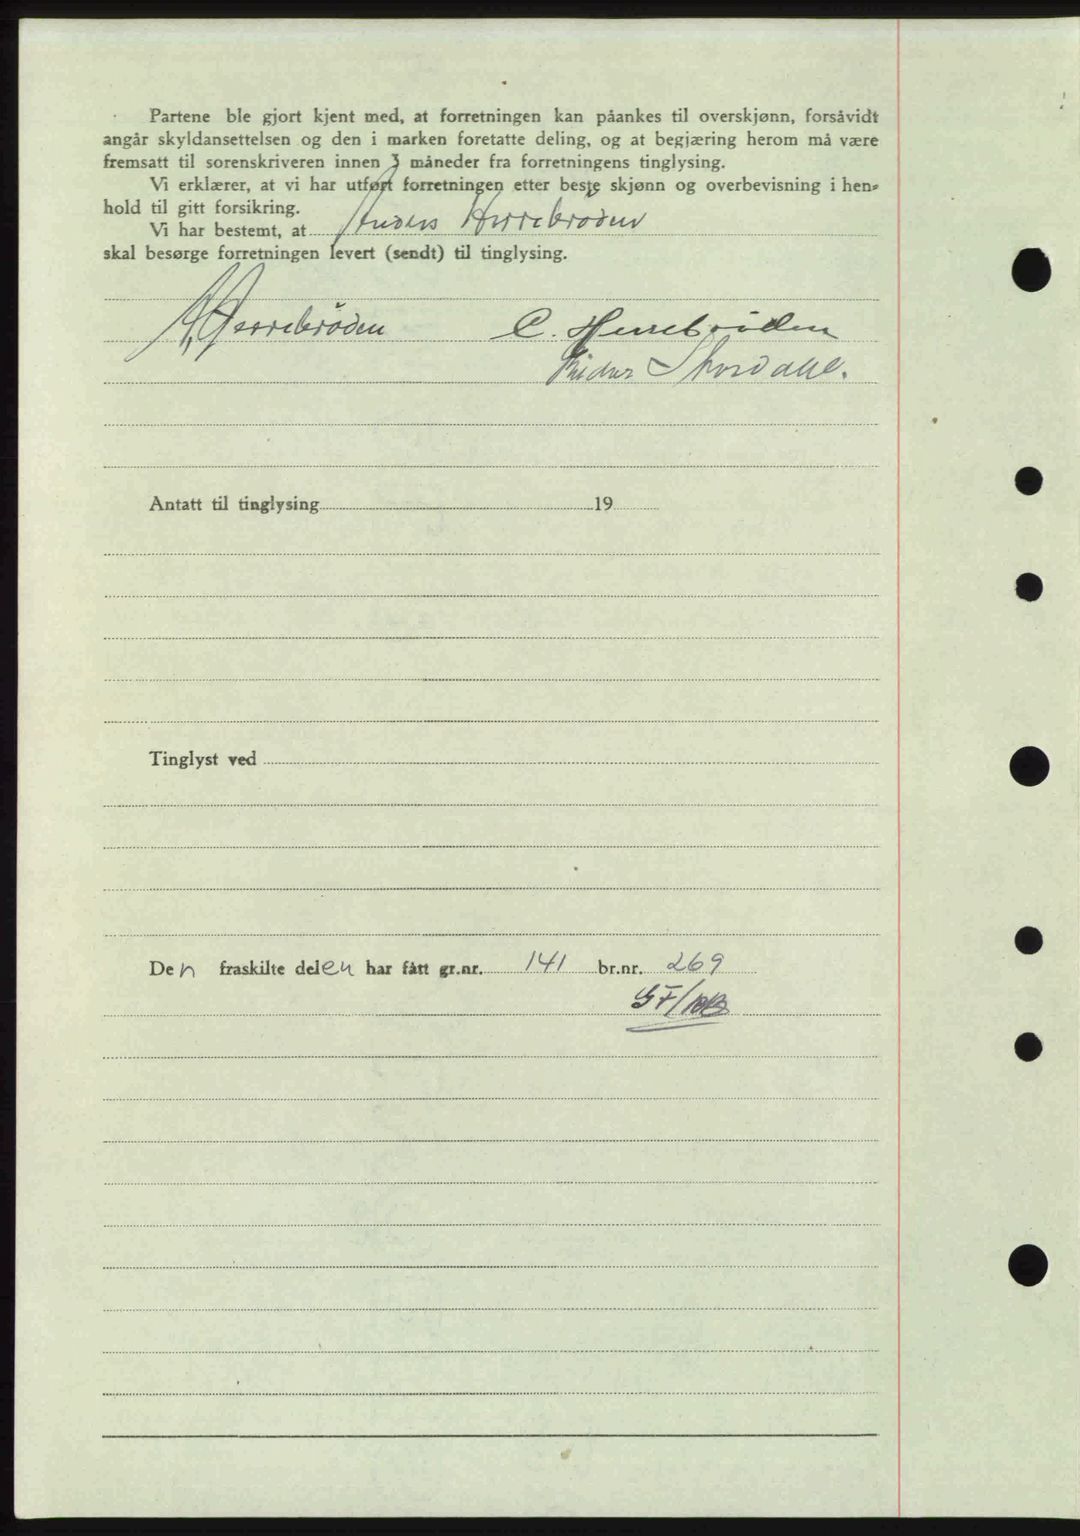 Partene ble gjort kjent med, at forretningen kan påankes til overskjønn, forsåvidt
angår skyldansettelsen og den i marken foretatte deling, og at begjæring herom må være
fremsatt til sorenskriveren innen 3 måneder fra forretningens tinglysing.
Vi erklærer, at vi har utført forretningen etter beste skjønn og overbevisning i hen-
hold til gitt forsikring.
Vi har bestemt, at Anders Herrebröden
skal besørge forretningen levert (sendt) til tinglysing.
A. Herrebröden C. Herrebröden
Skordahl.
Antatt til tinglysing 19
Tinglyst ved
Den fraskilte delen har fått gr.nr. 141 br.nr. 269